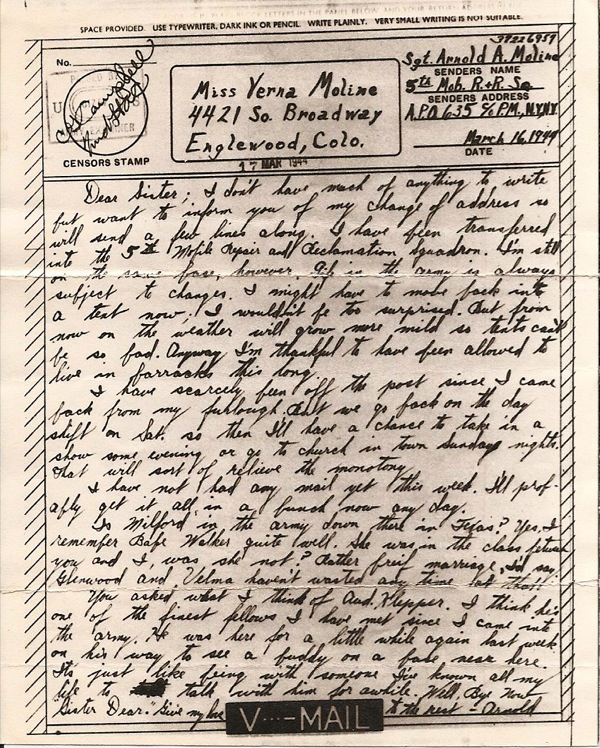 SPACE PROVIDED. USE TYPEWRITER, DARK INK OR PENCIL. WRITE PLAINLY. VERY SMALL WRITING IS NOT SUITABLE.
No.
CENSORS STAMP
Miss Verna Moline
4421 So. Broadway
Englewood, Colo.
17 MAR 1944
37226959
Sgt. Arnold A. Moline
SENDERS NAME
5th Mob. R.+R. Sq.
SENDERS ADDRESS
A.P.O. 635 % P.M., N.Y. N.Y.
March 16, 1944
DATE
Dear Sister; I don't have much of anything to write
but want to inform you of my change of address so
will send a few lines along. I have been transferred
into the 5th Mobile Repair and Reclamation Squadron. I'm still
on the same base, however. Life in the army is always
subject to changes. I might have to move back into
a tent now. I wouldn't be too surprised. But from
now on the weather will grow more mild so tents can't
be so bad. Anyway I'm thankful to have been allowed to
live in barracks this long.
I have scarcely been off the post since I came
back from my furlough. But we go back on the day
shift on Sat. so then I'll have a chance to take in a
show some evening or go to church in town Sunday nights.
That will sort of relieve the monotony
I have not had any mail yet this week. I'll prob-
ably get it all in a bunch now any day.
Is Wilford in the army down there in Texas? Yes, I
remember Babe Walker quite well. She was in the class between
you and I, was she not? Rather brief marriage, I'd say.
Glenwood and Velma haven't wasted any time at that!
You asked what I think of Aud. Klepper. I think he's
one of the finest fellows I have met since I came into
the army. He was here for a little while again last week
on his way to see a buddy on a base near here.
It's just like being with someone I've known all my
life to talk with him for awhile. Well, Bye Now
"Sister Dear." Give my love to the rest - Arnold
V···–MAIL